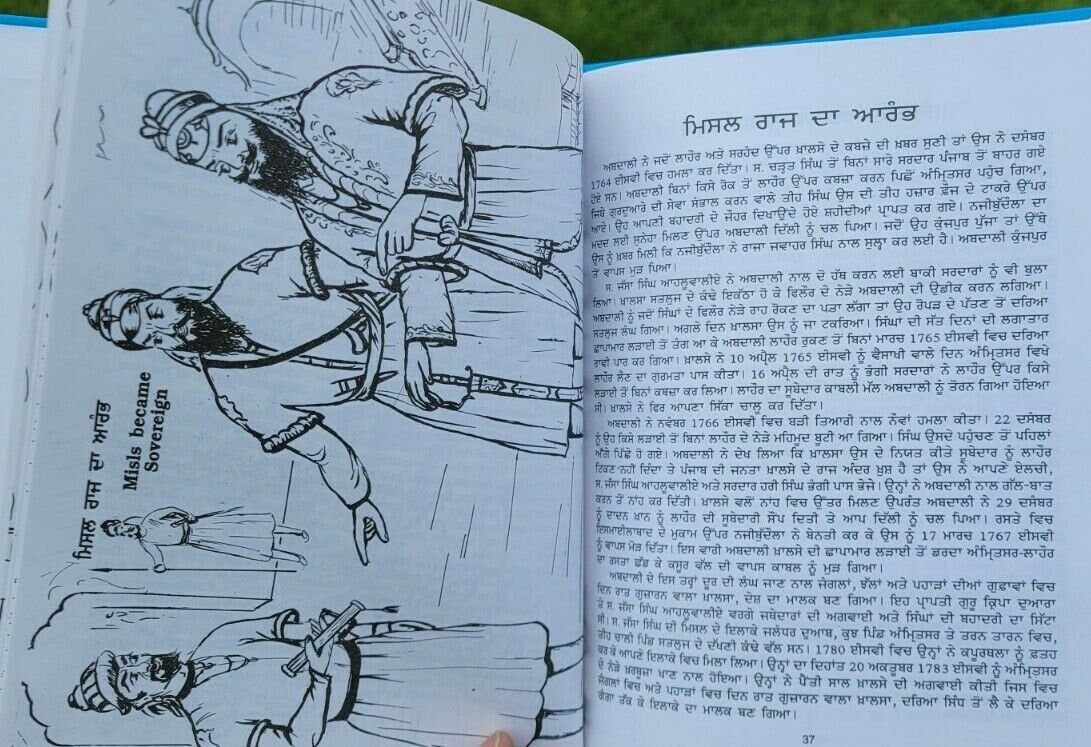 ਮਿਸਲ ਰਾਜ ਦਾ ਆਰੰਭ
Misls became
Sovereign
ਮਿਸਲ ਰਾਜ ਦਾ ਆਰੰਭ
ਅਬਦਾਲੀ ਨੇ ਜਦੋਂ ਲਾਹੌਰ ਅਤੇ ਸਰਹੰਦ ਉੱਪਰ ਖ਼ਾਲਸੇ ਦੇ ਕਬਜ਼ੇ ਦੀ ਖ਼ਬਰ ਸੁਣੀ ਤਾਂ ਉਸ ਨੇ ਦਸੰਬਰ
1764 ਈਸਵੀ ਵਿਚ ਹਮਲਾ ਕਰ ਦਿੱਤਾ। ਸ. ਚੜ੍ਹਤ ਸਿੰਘ ਤੋਂ ਬਿਨਾਂ ਸਾਰੇ ਸਰਦਾਰ ਪੰਜਾਬ ਤੋਂ ਬਾਹਰ ਗਏ
ਹੋਏ ਸਨ। ਅਬਦਾਲੀ ਬਿਨਾਂ ਕਿਸੇ ਰੋਕ ਤੋਂ ਲਾਹੌਰ ਉੱਪਰ ਕਬਜ਼ਾ ਕਰਨ ਪਿਛੋਂ ਅੰਮ੍ਰਿਤਸਰ ਪਹੁੰਚ ਗਿਆ,
ਜਿਥੇ ਗੁਰਦੁਆਰੇ ਦੀ ਸੇਵਾ ਸੰਭਾਲ ਕਰਨ ਵਾਲੇ ਤੀਹ ਸਿੰਘ ਉਸ ਦੀ ਤੀਹ ਹਜ਼ਾਰ ਫ਼ੌਜ ਦੇ ਟਾਕਰੇ ਉੱਪਰ
ਆਏ। ਉਹ ਆਪਣੀ ਬਹਾਦਰੀ ਦੇ ਜੌਹਰ ਦਿਖਾਉਂਦੇ ਹੋਏ ਸ਼ਹੀਦੀਆਂ ਪ੍ਰਾਪਤ ਕਰ ਗਏ। ਨਜੀਬੁੱਦੌਲਾ ਦਾ
ਮਦਦ ਲਈ ਸੁਨੇਹਾ ਮਿਲਣ ਉੱਪਰ ਅਬਦਾਲੀ ਦਿੱਲੀ ਨੂੰ ਚਲ ਪਿਆ। ਜਦੋਂ ਉਹ ਕੁੰਜਪੁਰ ਪੁੱਜਾ ਤਾਂ ਉੱਥੇ
ਉਸ ਨੂੰ ਖ਼ਬਰ ਮਿਲੀ ਕਿ ਨਜੀਬੁੱਦੌਲਾ ਨੇ ਰਾਜਾ ਜਵਾਹਰ ਸਿੰਘ ਨਾਲ ਸੁਲ੍ਹਾ ਕਰ ਲਈ ਹੈ। ਅਬਦਾਲੀ ਕੁੰਜਪੁਰ
ਤੋਂ ਵਾਪਸ ਮੁੜ ਪਿਆ।
ਸ. ਜੱਸਾ ਸਿੰਘ ਆਹਲੂਵਾਲੀਏ ਨੇ ਅਬਦਾਲੀ ਨਾਲ ਦੋ ਹੱਥ ਕਰਨ ਲਈ ਬਾਕੀ ਸਰਦਾਰਾਂ ਨੂੰ ਵੀ ਬੁਲਾ
ਲਿਆ। ਖ਼ਾਲਸਾ ਸਤਲੁਜ ਦੇ ਕੰਢੇ ਇਕੱਠਾ ਹੋ ਕੇ ਫਿਲੌਰ ਦੇ ਨੇੜੇ ਅਬਦਾਲੀ ਦੀ ਉਡੀਕ ਕਰਨ ਲਗਿਆ।
ਅਬਦਾਲੀ ਨੂੰ ਜਦੋਂ ਸਿੰਘਾਂ ਦੇ ਫਿਲੌਰ ਨੇੜੇ ਰਾਹ ਰੋਕਣ ਦਾ ਪਤਾ ਲੱਗਾ ਤਾਂ ਉਹ ਰੋਪੜ ਦੇ ਪੱਤਣ ਤੋਂ ਦਰਿਆ
ਸਤਲੁਜ ਲੰਘ ਗਿਆ। ਅਗਲੇ ਦਿਨ ਖ਼ਾਲਸਾ ਉਸ ਨੂੰ ਜਾ ਟਕਰਿਆ। ਸਿੰਘਾਂ ਦੀ ਸੱਤ ਦਿਨਾਂ ਦੀ ਲਗਾਤਾਰ
ਛਾਪਾਮਾਰ ਲੜਾਈ ਤੋਂ ਤੰਗ ਆ ਕੇ ਅਬਦਾਲੀ ਲਾਹੌਰ ਰੁਕਣ ਤੋਂ ਬਿਨਾਂ ਮਾਰਚ 1765 ਈਸਵੀ ਵਿਚ ਦਰਿਆ
ਰਾਵੀ ਪਾਰ ਕਰ ਗਿਆ। ਖ਼ਾਲਸੇ ਨੇ 10 ਅਪ੍ਰੈਲ 1765 ਈਸਵੀ ਨੂੰ ਵੈਸਾਖੀ ਵਾਲੇ ਦਿਨ ਅੰਮ੍ਰਿਤਸਰ ਵਿਖੇ
ਲਾਹੌਰ ਲੈਣ ਦਾ ਗੁਰਮਤਾ ਪਾਸ ਕੀਤਾ। 16 ਅਪ੍ਰੈਲ ਦੀ ਰਾਤ ਨੂੰ ਭੰਗੀ ਸਰਦਾਰਾਂ ਨੇ ਲਾਹੌਰ ਉੱਪਰ ਕਿਸੇ
ਲੜਾਈ ਤੋਂ ਬਿਨਾਂ ਕਬਜ਼ਾ ਕਰ ਲਿਆ। ਲਾਹੌਰ ਦਾ ਸੂਬੇਦਾਰ ਕਾਬਲੀ ਮੱਲ ਅਬਦਾਲੀ ਨੂੰ ਤੋਰਨ ਗਿਆ ਹੋਇਆ
ਸੀ। ਖ਼ਾਲਸੇ ਨੇ ਫਿਰ ਆਪਣਾ ਸਿੱਕਾ ਚਾਲੂ ਕਰ ਦਿੱਤਾ।
ਅਬਦਾਲੀ ਨੇ ਨਵੰਬਰ 1766 ਈਸਵੀ ਵਿਚ ਬੜੀ ਤਿਆਰੀ ਨਾਲ ਨੌਵਾਂ ਹਮਲਾ ਕੀਤਾ। 22 ਦਸੰਬਰ
ਨੂੰ ਉਹ ਕਿਸੇ ਲੜਾਈ ਤੋਂ ਬਿਨਾਂ ਲਾਹੌਰ ਦੇ ਨੇੜੇ ਮਹਿਮੂਦ ਬੂਟੀ ਆ ਗਿਆ। ਸਿੰਘ ਉਸਦੇ ਪਹੁੰਚਣ ਤੋਂ ਪਹਿਲਾਂ
ਅੱਗੇ ਪਿੱਛੇ ਹੋ ਗਏ। ਅਬਦਾਲੀ ਨੇ ਦੇਖ ਲਿਆ ਕਿ ਖ਼ਾਲਸਾ ਉਸ ਦੇ ਨਿਯਤ ਕੀਤੇ ਸੂਬੇਦਾਰ ਨੂੰ ਲਾਹੌਰ
ਟਿਕਣ ਨਹੀਂ ਦਿੰਦਾ ਤੇ ਪੰਜਾਬ ਦੀ ਜਨਤਾ ਖ਼ਾਲਸੇ ਦੇ ਰਾਜ ਅੰਦਰ ਖ਼ੁਸ਼ ਹੈ ਤਾਂ ਉਸ ਨੇ ਆਪਣੇ ਏਲਚੀ,
ਸ. ਜੱਸਾ ਸਿੰਘ ਆਹਲੂਵਾਲੀਏ ਅਤੇ ਸਰਦਾਰ ਹਰੀ ਸਿੰਘ ਭੰਗੀ ਪਾਸ ਭੇਜੇ। ਉਨ੍ਹਾਂ ਨੇ ਅਬਦਾਲੀ ਨਾਲ ਗੱਲ-ਬਾਤ
ਕਰਨ ਤੋਂ ਨਾਂਹ ਕਰ ਦਿੱਤੀ। ਖ਼ਾਲਸੇ ਵਲੋਂ ਨਾਂਹ ਵਿਚ ਉੱਤਰ ਮਿਲਣ ਉਪਰੰਤ ਅਬਦਾਲੀ ਨੇ 29 ਦਸੰਬਰ
ਨੂੰ ਦਾਦਨ ਖ਼ਾਨ ਨੂੰ ਲਾਹੌਰ ਦੀ ਸੂਬੇਦਾਰੀ ਸੌਂਪ ਦਿਤੀ ਤੇ ਆਪ ਦਿੱਲੀ ਨੂੰ ਚਲ ਪਿਆ। ਰਸਤੇ ਵਿਚ
ਇਸਮਾਈਲਾਬਾਦ ਦੇ ਮੁਕਾਮ ਉੱਪਰ ਨਜੀਬੁੱਦੌਲਾ ਨੇ ਬੇਨਤੀ ਕਰ ਕੇ ਉਸ ਨੂੰ 17 ਮਾਰਚ 1767 ਈਸਵੀ
ਨੂੰ ਵਾਪਸ ਮੋੜ ਦਿੱਤਾ। ਇਸ ਵਾਰੀ ਅਬਦਾਲੀ ਖ਼ਾਲਸੇ ਦੀ ਛਾਪਾਮਾਰ ਲੜਾਈ ਤੋਂ ਡਰਦਾ ਅੰਮ੍ਰਿਤਸਰ-ਲਾਹੌਰ
ਦਾ ਰਸਤਾ ਛੱਡ ਕੇ ਕਸੂਰ ਵੱਲ ਦੀ ਵਾਪਸ ਕਾਬਲ ਨੂੰ ਮੁੜ ਗਿਆ।
ਅਬਦਾਲੀ ਦੇ ਇਸ ਤਰ੍ਹਾਂ ਦੂਰ ਦੀ ਲੰਘ ਜਾਣ ਨਾਲ ਜੰਗਲਾਂ, ਝੱਲਾਂ ਅਤੇ ਪਹਾੜਾਂ ਦੀਆਂ ਗੁਫਾਵਾਂ ਵਿਚ
ਦਿਨ ਰਾਤ ਗੁਜ਼ਾਰਨ ਵਾਲਾ ਖ਼ਾਲਸਾ, ਦੇਸ਼ ਦਾ ਮਾਲਕ ਬਣ ਗਿਆ। ਇਹ ਪ੍ਰਾਪਤੀ ਗੁਰੂ ਕ੍ਰਿਪਾ ਦੁਆਰਾ
ਤੇ ਸ. ਜੱਸਾ ਸਿੰਘ ਆਹਲੂਵਾਲੀਏ ਵਰਗੇ ਜਥੇਦਾਰਾਂ ਦੀ ਅਗਵਾਈ ਅਤੇ ਸਿੰਘਾਂ ਦੀ ਬਹਾਦਰੀ ਦਾ ਸਿੱਟਾ
ਸੀ। ਸ. ਜੱਸਾ ਸਿੰਘ ਦੀ ਮਿਸਲ ਦੇ ਇਲਾਕੇ ਜਲੰਧਰ ਦੁਆਬ, ਕੁਝ ਪਿੰਡ ਅੰਮ੍ਰਿਤਸਰ ਤੇ ਤਰਨ ਤਾਰਨ ਵਿਚ,
ਤੀਹ ਚਾਲੀ ਪਿੰਡ ਸਤਲੁਜ ਦੇ ਦੱਖਣੀ ਕੰਢੇ ਵੱਲ ਸਨ। 1780 ਈਸਵੀ ਵਿਚ ਉਨ੍ਹਾਂ ਨੇ ਕਪੂਰਥਲਾ ਨੂੰ ਫ਼ਤਹ
ਕਰ ਕੇ ਆਪਣੇ ਇਲਾਕੇ ਵਿਚ ਮਿਲਾ ਲਿਆ। ਉਨ੍ਹਾਂ ਦਾ ਦਿਹਾਂਤ 20 ਅਕਤੂਬਰ 1783 ਈਸਵੀ ਨੂੰ ਅੰਮ੍ਰਿਤਸਰ
ਦੇ ਨੇੜੇ ਖ਼ਰਬੂਜ਼ਾ ਖਾਣ ਨਾਲ ਹੋਇਆ। ਉਨ੍ਹਾਂ ਨੇ ਪੈਂਤੀ ਸਾਲ ਖ਼ਾਲਸੇ ਦੀ ਅਗਵਾਈ ਕੀਤੀ ਜਿਸ ਵਿਚ
ਜੰਗਲਾਂ ਵਿਚ ਅਤੇ ਪਹਾੜਾਂ ਵਿਚ ਦਿਨ ਰਾਤ ਗੁਜ਼ਾਰਨ ਵਾਲਾ ਖ਼ਾਲਸਾ, ਦਰਿਆ ਸਿੰਧ ਤੋਂ ਲੈ ਕੇ ਦਰਿਆ
ਗੰਗਾ ਤੱਕ ਕੇ ਇਲਾਕੇ ਦਾ ਮਾਲਕ ਬਣ ਗਿਆ।
37